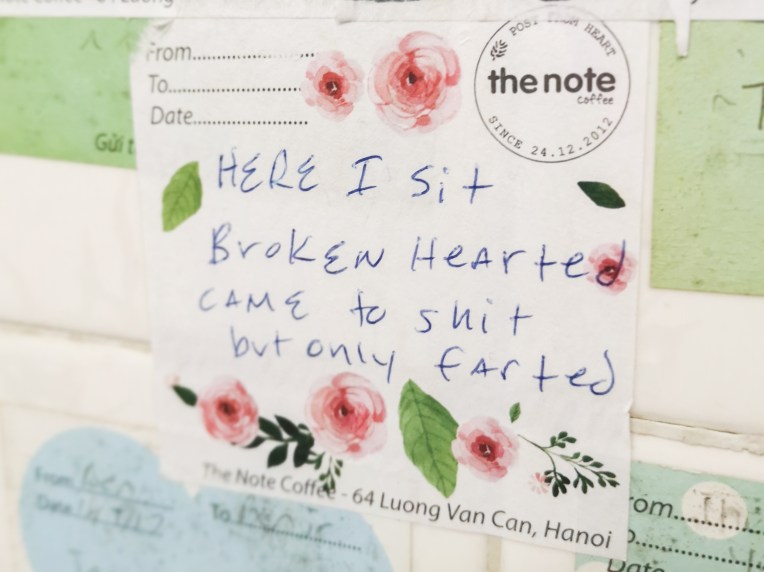 From
To
Date
POST FROM HEART
the note
coffee
SINCE 24.12.2012
HERE I Sit
BroKEN HeArted
CAME to shit
but only fArted
The Note Coffee - 64 Luong Van Can, Hanoi
Gửi
From
Date
To
rom
Date